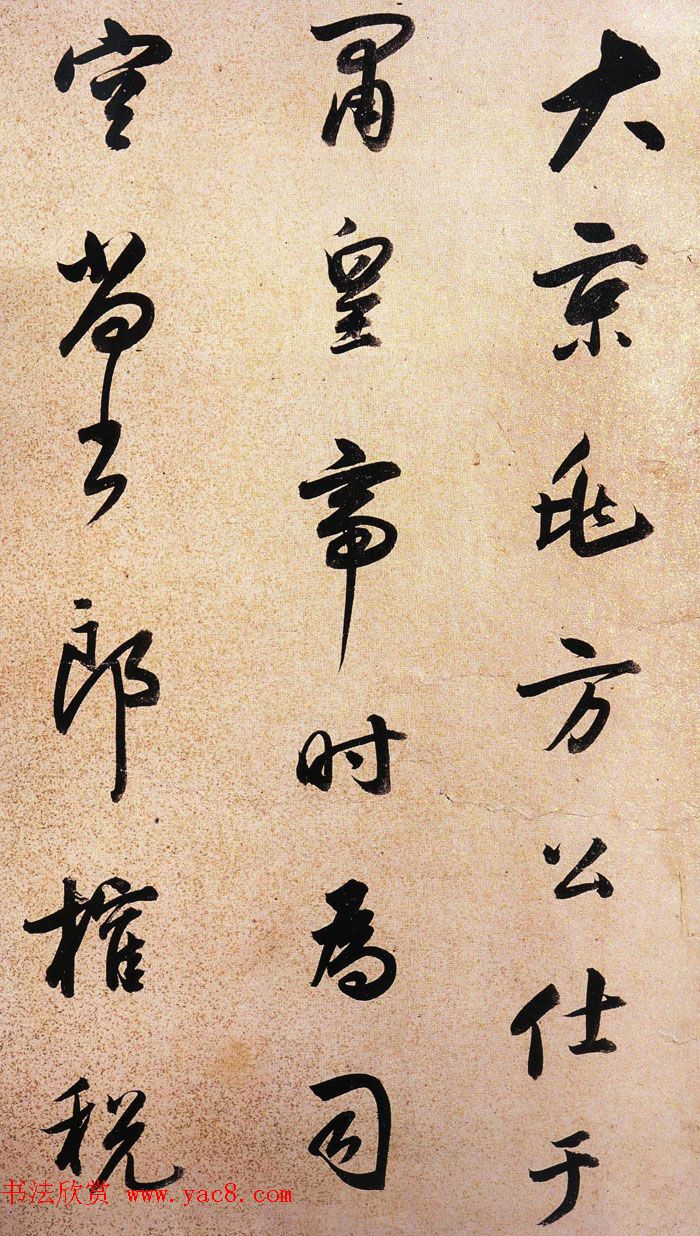 大京兆方公仕于
肅皇帝时為司
空尚書郎榷税
书法欣赏 www.yac8.com